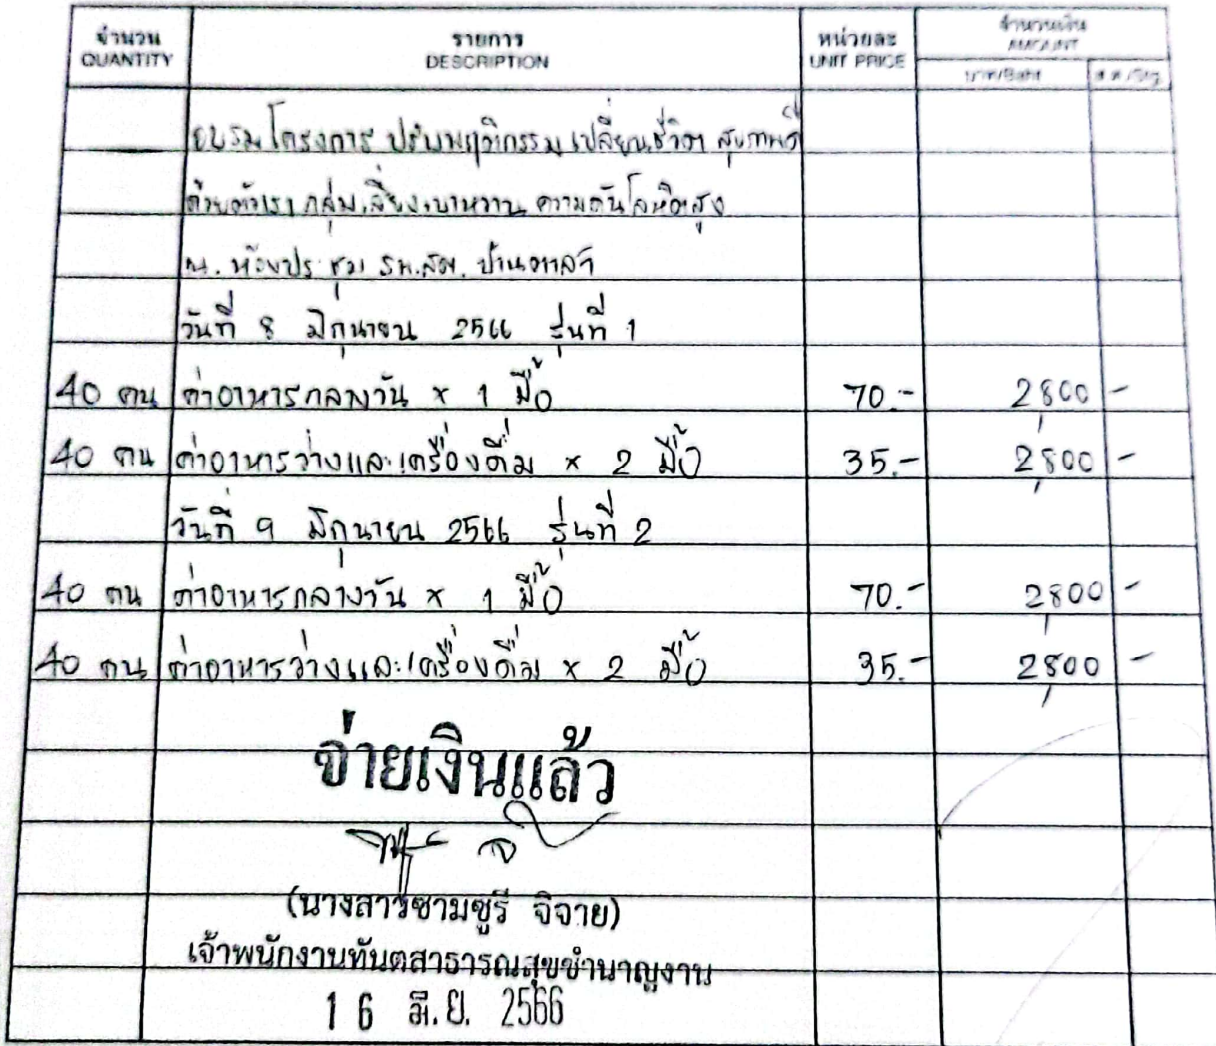 จำนวน รายการ หน่วยละ จำนวนเงิน
QUANTITY DESCRIPTION UNIT PRICE AMOUNT
บาท/Baht ส.ต./Stg.
อบรมโครงการ ปรับพฤติกรรม เปลี่ยนชีวิต สุขภาพดี
ด้วยตัวเรา กลุ่มเสี่ยงเบาหวาน ความดันโลหิตสูง
ณ. ห้องประชุม รพ.สต. บ้านตาลำ
วันที่ 8 มิถุนายน 2566 รุ่นที่ 1
40 คน ค่าอาหารกลางวัน x 1 มื้อ 70.- 2,800 -
40 คน ค่าอาหารว่างและเครื่องดื่ม x 2 มื้อ 35.- 2,800 -
วันที่ 9 มิถุนายน 2566 รุ่นที่ 2
40 คน ค่าอาหารกลางวัน x 1 มื้อ 70.- 2,800 -
40 คน ค่าอาหารว่างและเครื่องดื่ม x 2 มื้อ 35.- 2,800 -
จ่ายเงินแล้ว
(นางสาวซามซูรี จิจาย)
เจ้าพนักงานทันตสาธารณสุขชำนาญงาน
16 มิ.ย. 2566